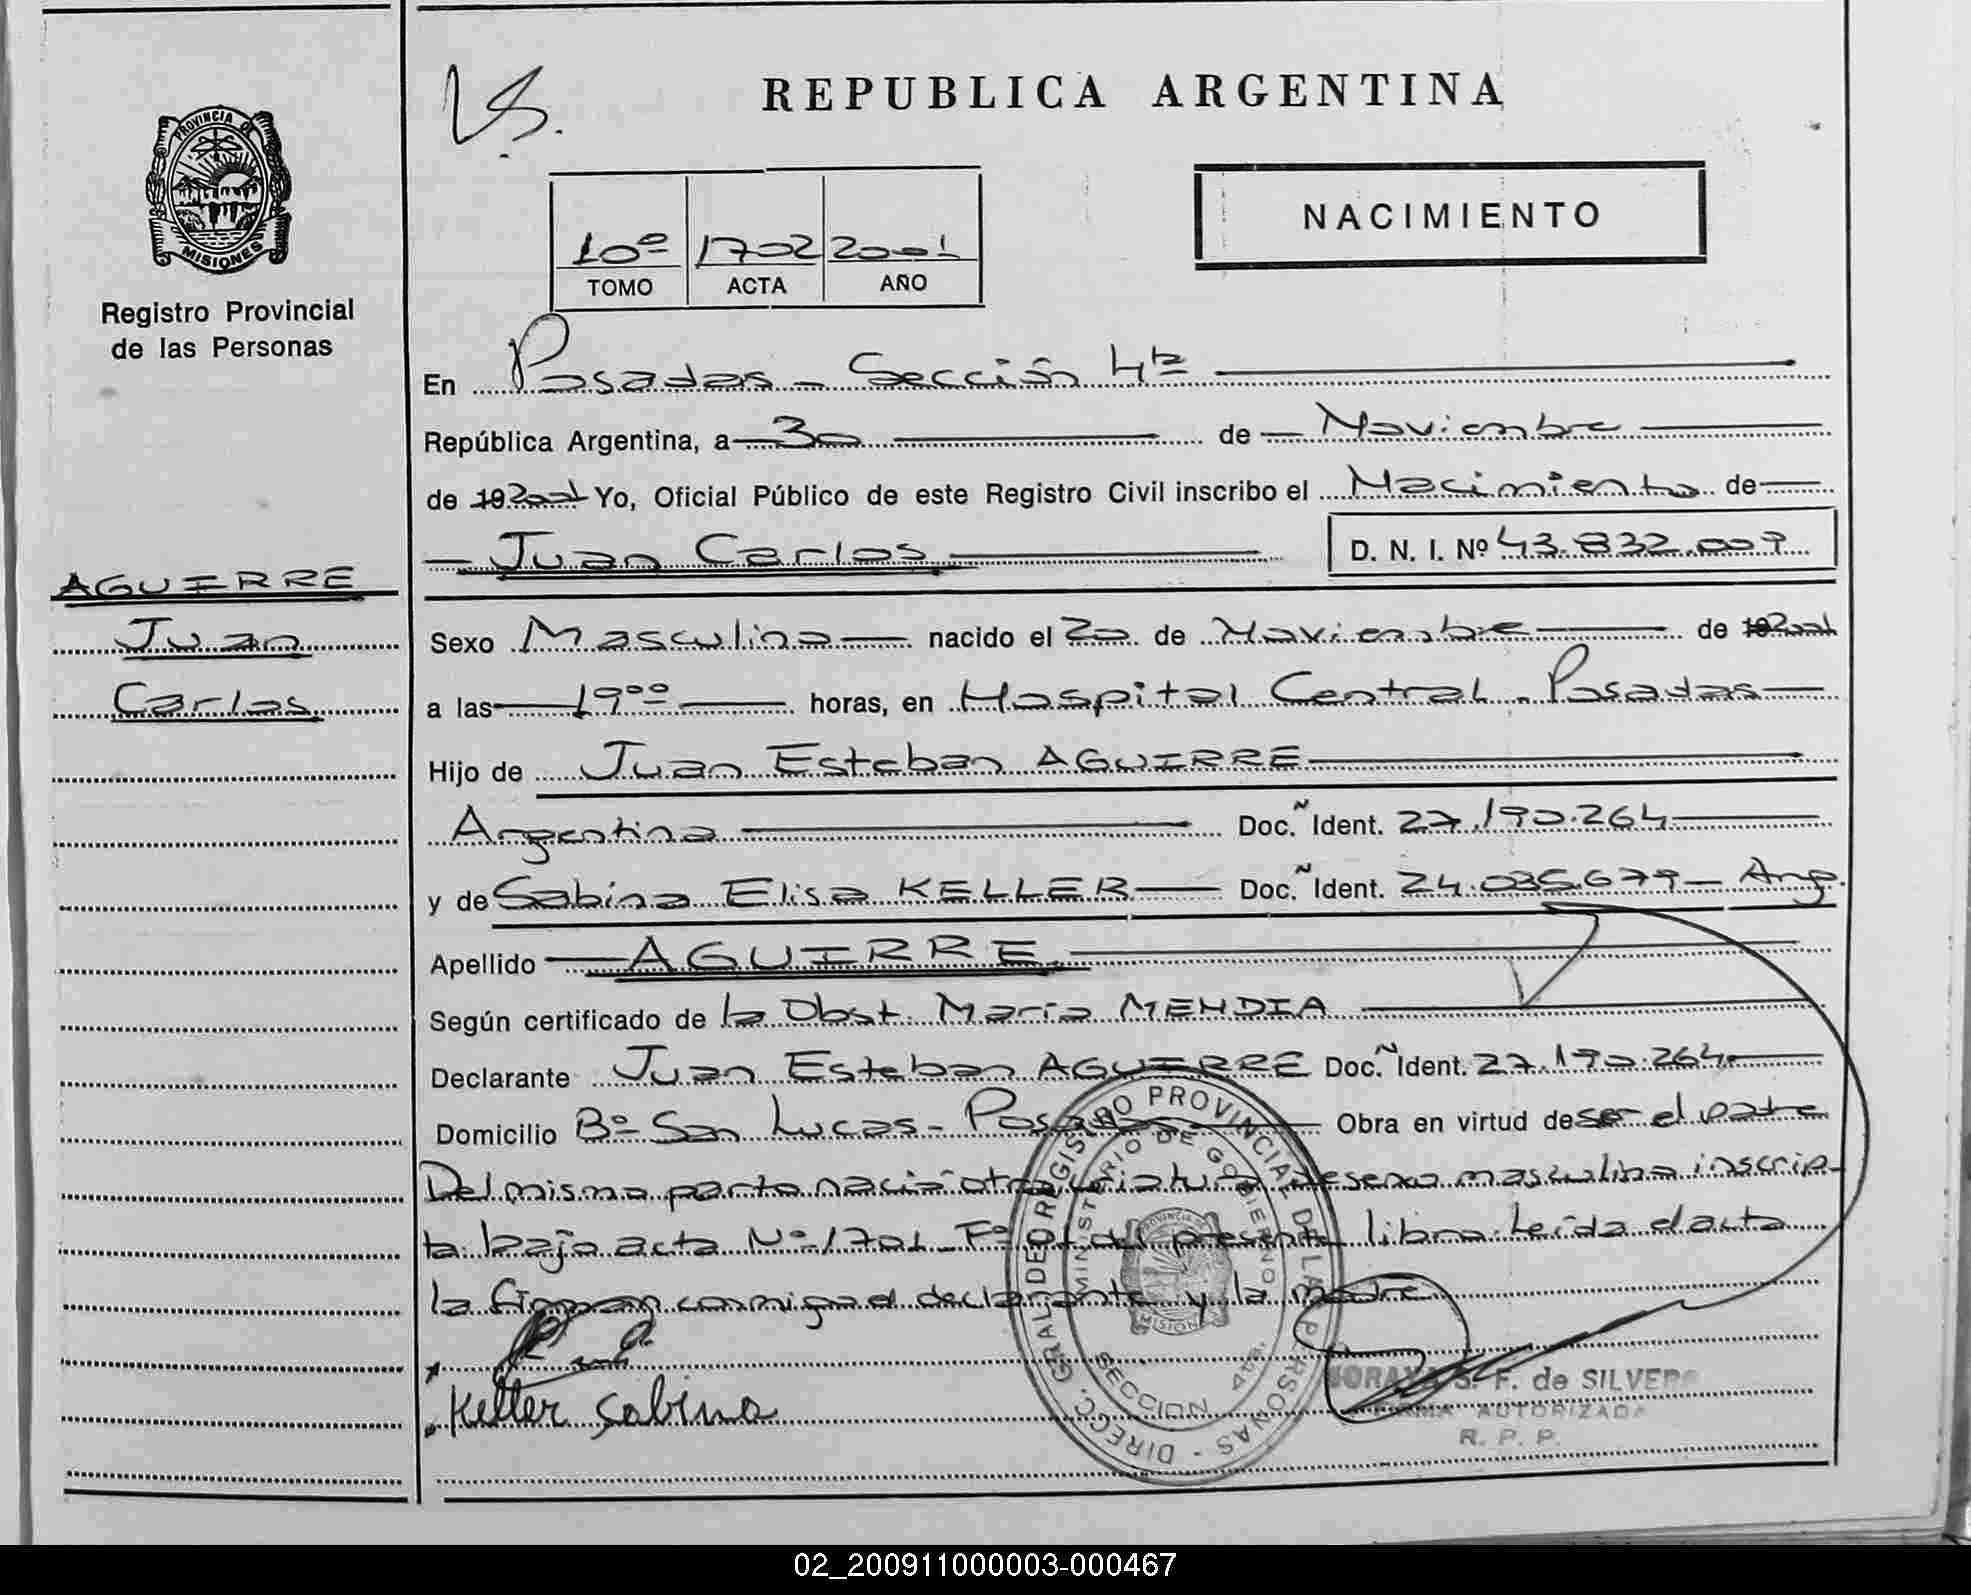 REPUBLICA ARGENTINA
PROVINCIA DE
MISIONES
Registro Provincial
de las Personas
10º 1702 2001
TOMO ACTA AÑO
NACIMIENTO
En Posadas - Sección 4ta
República Argentina, a 30 de Noviembre
de 192001 Yo, Oficial Público de este Registro Civil inscribo el Nacimiento de
Juan Carlos D. N. I. Nº 43.832.009
AGUIRRE
Juan
Carlos
Sexo Masculino nacido el 20 de Noviembre de 192001
a las 19⁰⁰ horas, en Hospital Central - Posadas
Hijo de Juan Esteban AGUIRRE
Argentino Doc. Ident. 27.190.264
y de Sabina Elisa KELLER Doc. Ident. 24.035.679 - Arg.
Apellido AGUIRRE
Según certificado de la Obst. María MENDIA
Declarante Juan Esteban AGUIRRE Doc. Ident. 27.190.264
Domicilio Bº San Lucas - Posadas Obra en virtud de ser el padre
Del mismo parto nació otra criatura de sexo masculino inscrip-
ta bajo acta Nº 1701 Fº 01 del presente libro. Leída el acta
la firman conmigo el declarante y la madre
Keller Sabina
DIRECC. GRAL DEL REGISTRO PROVINCIAL DE LAS PERSONAS
MINISTERIO DE GOBIERNO
PROVINCIA DE
MISIONES
SECCION 4ta.
SORAYA S. F. de SILVERO
FIRMA AUTORIZADA
R. P. P.
02_200911000003-000467